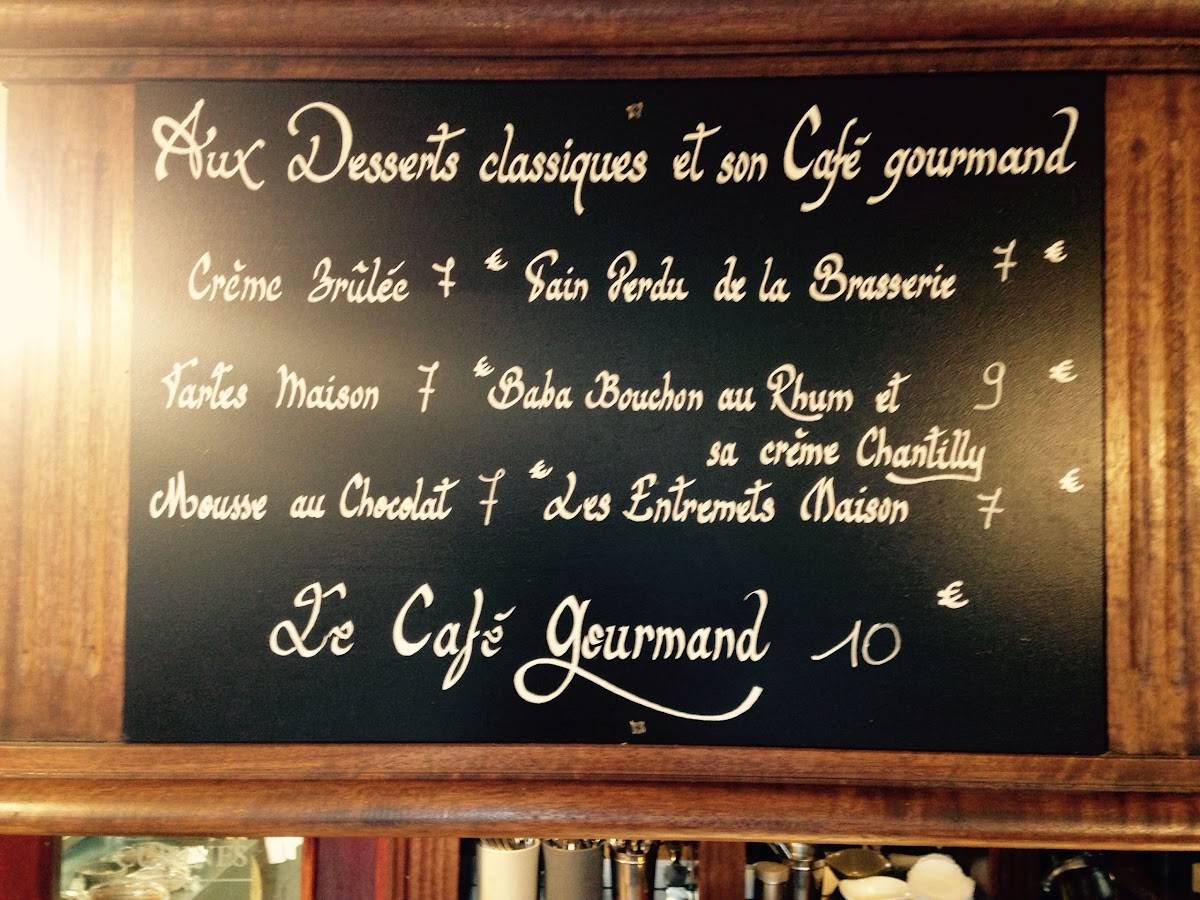 Aux Desserts classiques et son Café gourmand
Crème Brûlée 7 € Pain Perdu de la Brasserie 7 €
Tartes Maison 7 € Baba Bouchon au Rhum et 9 €
sa crème Chantilly
Mousse au Chocolat 7 € Les Entremets Maison 7 €
Le Café Gourmand 10 €